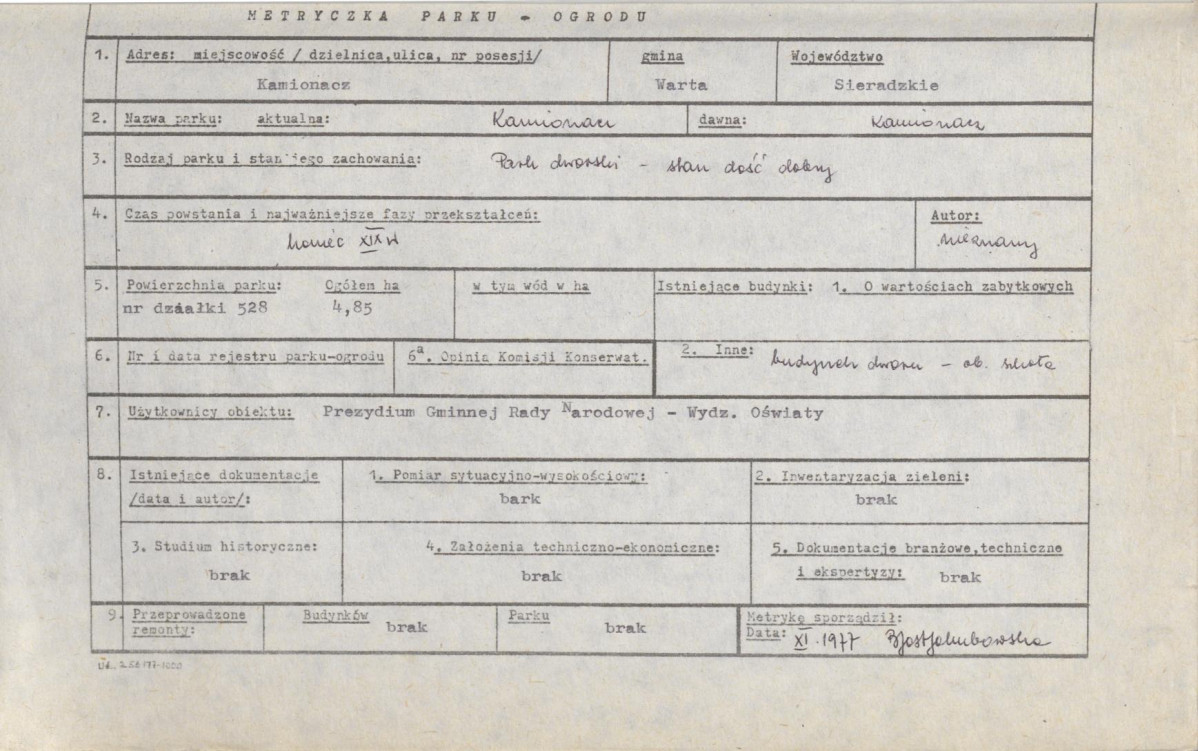 METRYCZKA PARKU - OGRODU
1. Adres: miejscowość / dzielnica,ulica, nr posesji/ gmina Województwo
Kamionacz Warta Sieradzkie
2. Nazwa parku: aktualna: Kamionacz dawna: Kamionacz
3. Rodzaj parku i stan jego zachowania: Park dworski - stan dość dobry
4. Czas powstania i najważniejsze fazy przekształceń: Autor:
koniec XIX w nieznany
5. Powierzchnia parku: Ogółem ha w tym wód w ha Istniejące budynki: 1. O wartościach zabytkowych
nr działki 528 4,85
6. Nr i data rejestru parku-ogrodu 6a. Opinia Komisji Konserwat. 2. Inne: budynek dworu - ob. szkoła
7. Użytkownicy obiektu: Prezydium Gminnej Rady Narodowej - Wydz. Oświaty
8. Istniejące dokumentacje 1. Pomiar sytuacyjno-wysokościowy: 2. Inwentaryzacja zieleni:
/data i autor/: bark brak
3. Studium historyczne: 4. Założenia techniczno-ekonomiczne: 5. Dokumentacje branżowe,techniczne
brak brak i ekspertyzy: brak
9. Przeprowadzone Budynków Parku Metrykę sporządził:
remonty: brak brak Data: XI.1977